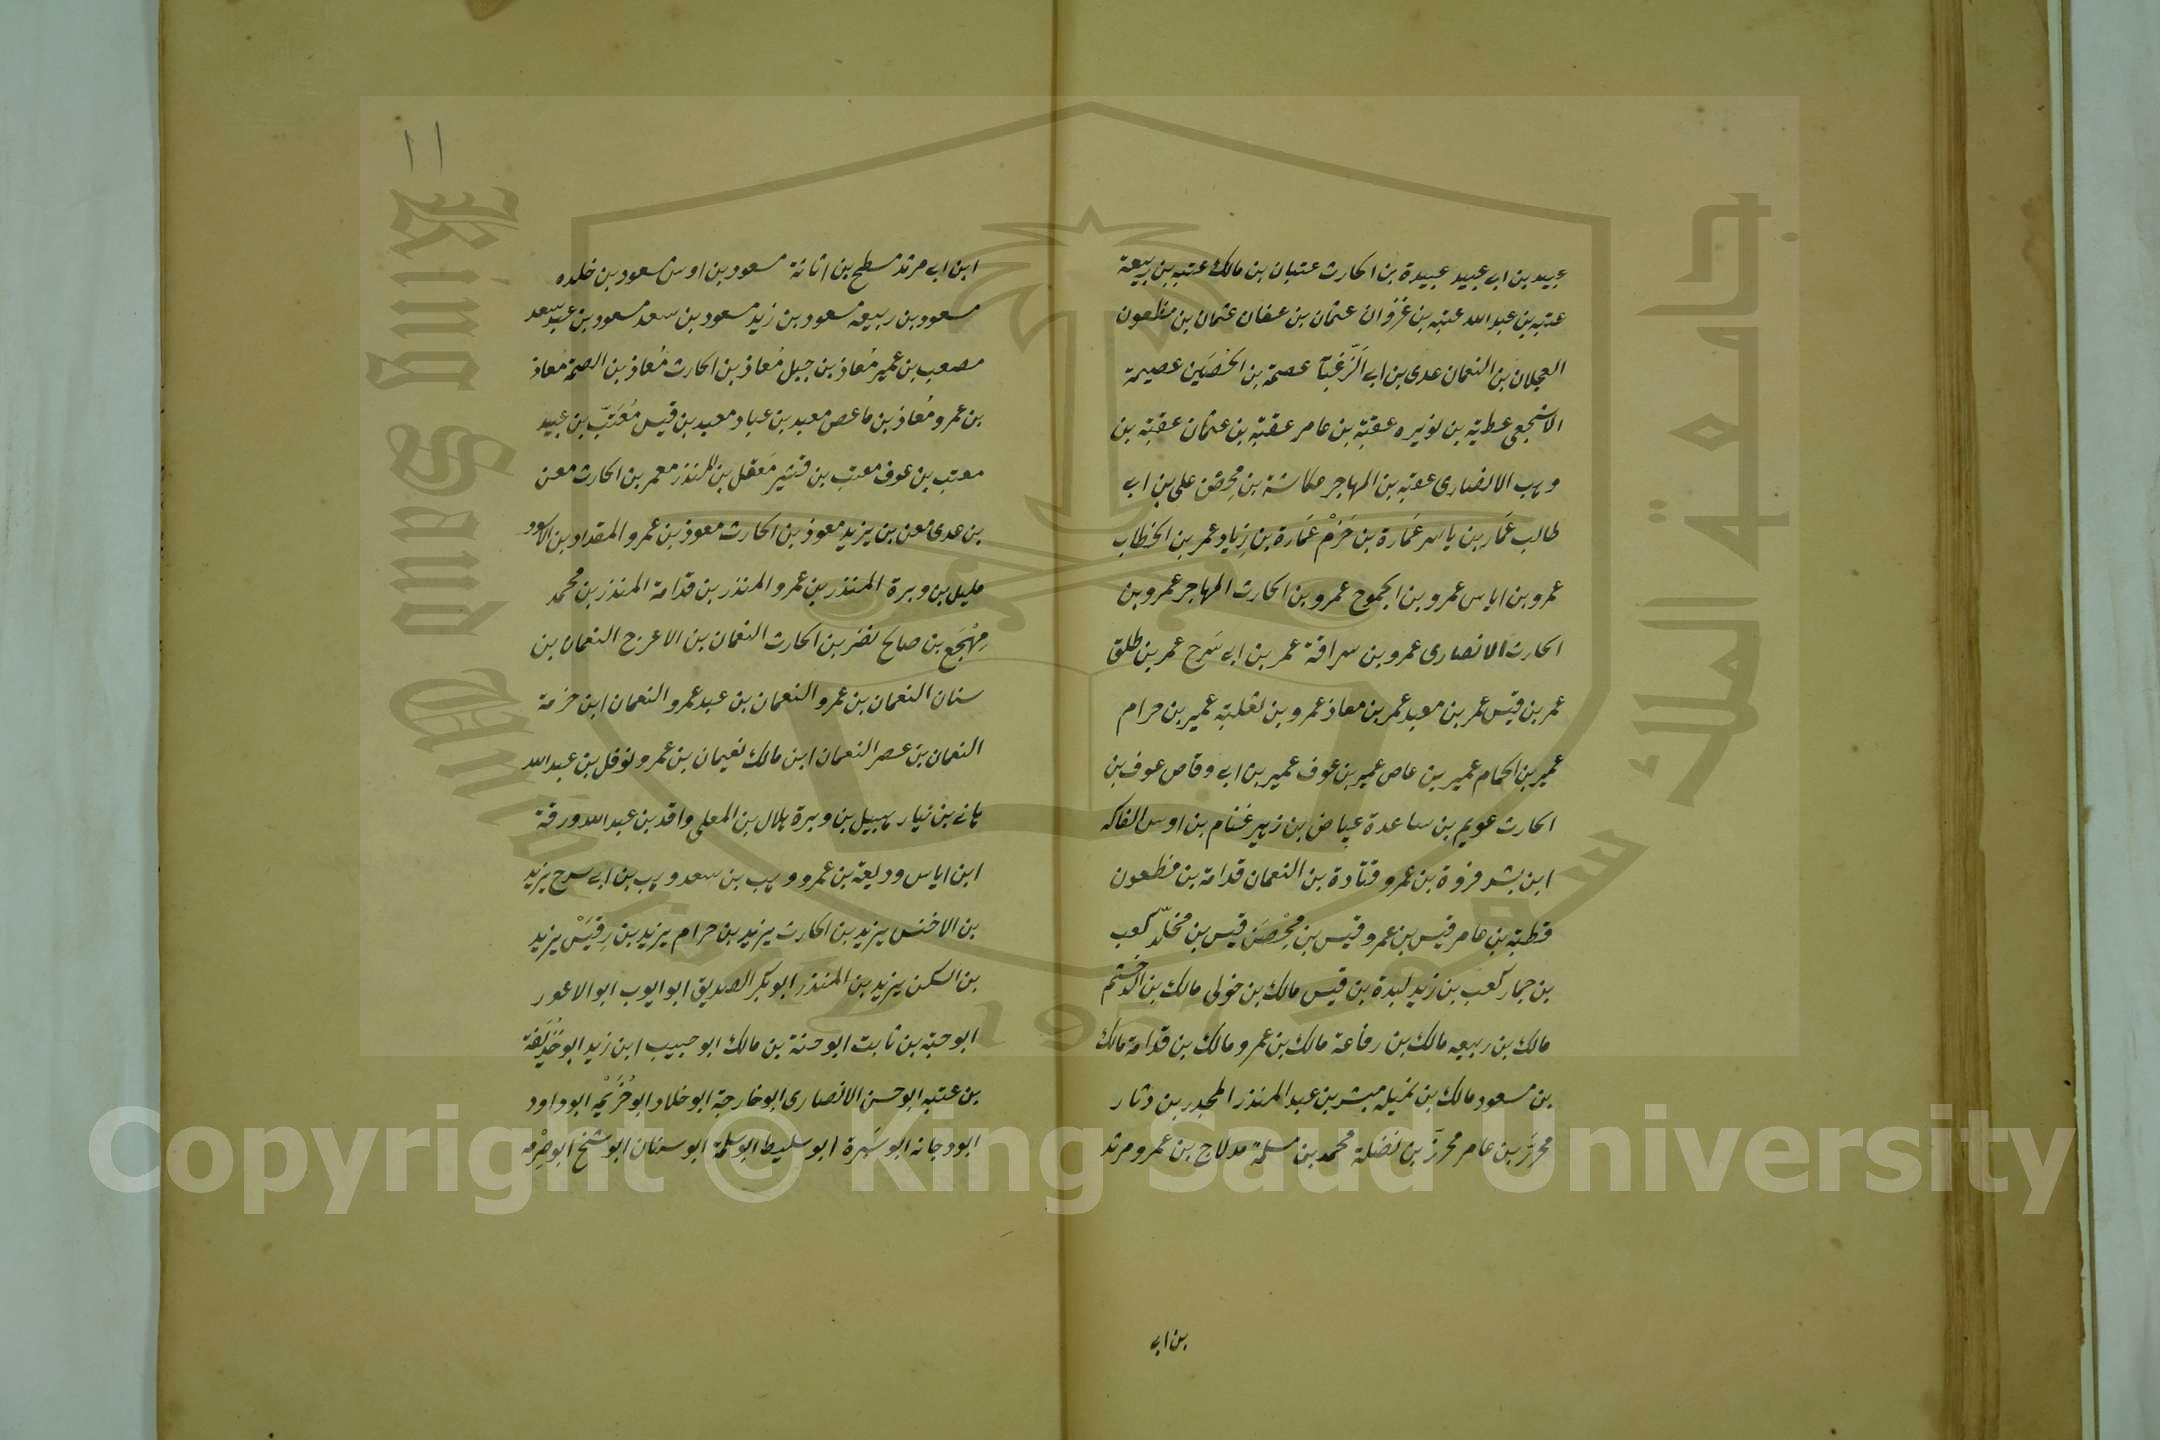 عبيد بن ابي عبيد عبيدة بن الحارث عتبان بن مالك عتبه بن ربيعة
عتبه بن عبد الله عتبه بن غزوان عثمان بن عفان عثمان بن مظعون
العجلان بن النعمان عدى بن ابي الزغبآ عصمة بن الحصين عصيمة
الاشجعي عطية بن نويره عقبة بن عامر عقبة بن عثمان عقبة بن
وهب الانصارى عقبه بن المهاجر عكاشة بن محصن علي بن ابي
طالب عمار بن ياسر عمارة بن حزم عمارة بن زياد عمر بن الخطاب
عمرو بن اياس عمرو بن الجموح عمرو بن الحارث المهاجر عمرو بن
الحارث الانصارى عمرو بن سراقة عمر بن ابي سرح عمر بن طلق
عمر بن قيس عمر بن معبد عمر بن معاذ عمرو بن ثعلبة عمير بن حرام
عمير بن الحمام عمير بن عاص عمير بن عوف عمير بن ابي وقاص عوف بن
الحارث عويم بن ساعدة عياض بن زهير غنام بن اوس الفاكه
ابن بشر فروة بن عمرو قتادة بن النعمان قدامة بن مظعون
قطبة بن عامر قيس بن عمرو قيس بن محصن قيس بن مخلد كعب
بن جمار كعب بن زيد لبدة بن قيس مالك بن خولى مالك بن الدخشم
مالك بن ربيعه مالك بن رفاعة مالك بن عمرو مالك بن قدامة مالك
بن مسعود مالك بن نميله مبشر بن عبد المنذر المجدر بن ذثار
محرز بن عامر محرز بن نضلة محمد بن مسلمة مدلاج بن عمرو مرثد
بن ابي
١١
ابن ابي مرثد مسطح بن اثاثة مسعود بن اوس مسعود بن خلده
مسعود بن ربيعه مسعود بن زيد مسعود بن سعد مسعود بن عبد سعد
مصعب بن عمير معاذ بن جبل معاذ بن الحارث معاذ بن الصمة معاذ
بن عمرو معاذ بن ماعص معبد بن عباد معبد بن قيس معتب بن عبيد
معتب بن عوف معتب بن قشير معقل بن المنذر معمر بن الحارث معن
بن عدى معن بن يزيد معوذ بن الحارث معوذ بن عمرو المقداد بن الاسود
مليل بن وبرة المنذر بن عمرو المنذر بن قدامة المنذر بن محمد
مهجع بن صالح نضر بن الحارث النعمان بن الاعرج النعمان بن
سنان النعمان بن عمرو النعمان بن عبد عمرو النعمان ابن خزمة
النعمان بن عصر النعمان ابن مالك نعيمان بن عمرو نوفل بن عبد الله
هانے بن نيار هبيل بن وبرة هلال بن المعلي واقد بن عبد الله ورقة
ابن اياس وديعة بن عمرو وهب بن سعد وهب بن ابي سرح يزيد
بن الاخنس يزيد بن الحارث يزيد بن حرام يزيد بن رقيس يزيد
بن السكن يزيد بن المنذر ابو بكر الصديق ابو ايوب ابو الاعور
ابو حبة بن ثابت ابو حنة بن مالك ابو حبيب ابن زيد ابو حذيفة
بن عتبه ابو حسن الانصارى ابو خارجة ابو خلاد ابو خزيمه ابو داود
ابو دجانه ابو سبرة ابو سليط ابو سلمة ابو سنان ابو شيخ ابو صرمه
King Saud University
جامعة الملك سعود
1957
Copyright © King Saud University